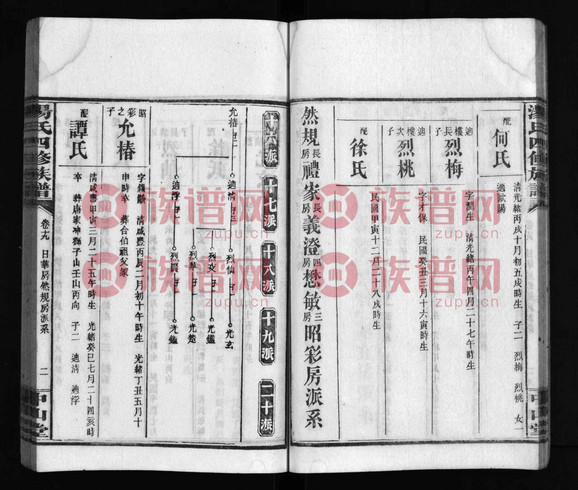 湯氏四修族譜
中山堂
配
何氏
清光緒丙戌十月初五戌時生 子二 烈梅 烈桃 女一
適歐陽
適樓長子
烈梅
字潤生 清光緒丙午四月二十七午時生
適樓次子
烈桃
字才保 民國癸丑三月十六寅時生
配
徐氏
民國甲寅十二月二十八戌時生
然規長房禮家長房義澄四房懋敏三房昭彩房派系
十六派 十七派 十八派 十九派 二十派
允椿
適清
適浮
烈仙
光玄
光鑑
昭彩之子
允椿
清咸豐丙辰二月初十午時生 光緒丁丑五月十
申時卒 葬合伯祖父冢
配
譚氏
清咸豐甲寅三月二十五年時生 光緒癸巳七月二十四亥時
卒 葬唐家冲獅子山壬山丙向 子二 適清 適浮
湯氏四修族譜
卷十九 日華房然規房派系
二
族谱网
zupu.cn